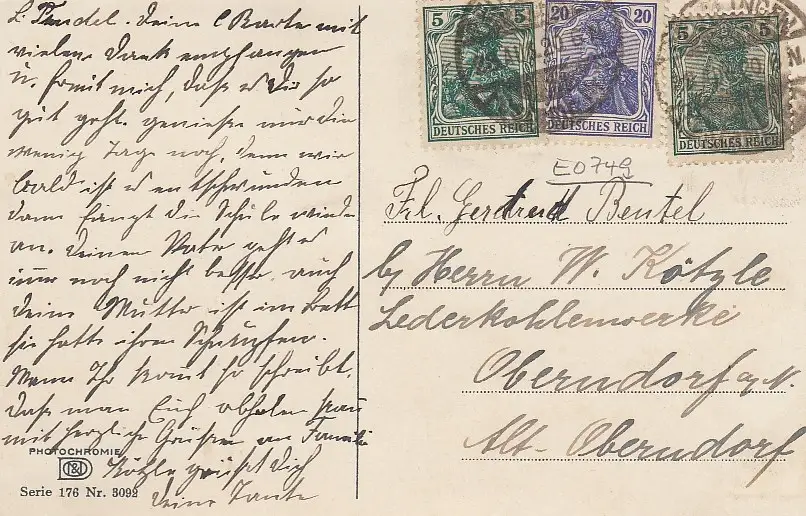 L. Trudel. Deine l. Karte mit
vielem Dank empfangen
u. freut mich, dass es Dir so
gut geht. geniesse nur die
wenig Tage noch, denn wie
bald ist es entschwunden
dann fängt die Schule wieder
an. Deinem Vater geht es
immer noch nicht besser, auch
deine Mutter ist im Bett
sie hatte ihren Schnupfen.
Wenn Ihr kommt so schreibt,
dass man Euch abholen kann
mit herzliche Grüssen an Familie
Kötzle grüsst Dich
Deine Tante
PHOTOCHROMIE
Serie 176 Nr. 3092
5 5
DEUTSCHES REICH
20 20
DEUTSCHES REICH
5 5
DEUTSCHES REICH
E0749
Frl. Gertrud Beutel
b/ Herrn W. Kötzle
Lederkohlenwerke
Oberndorf a/N.
Alt-Oberndorf